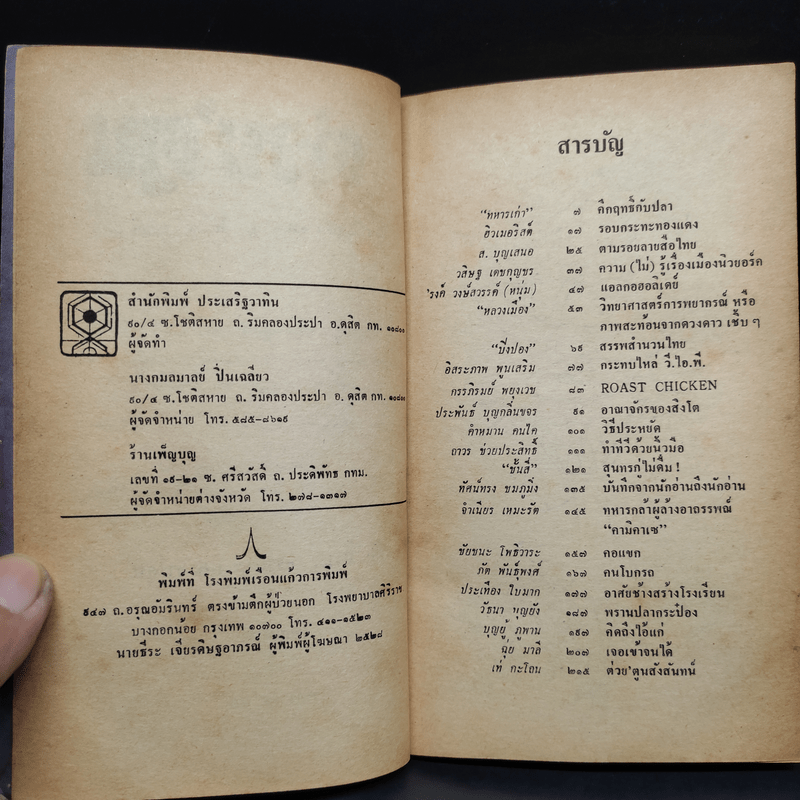 สำนักพิมพ์ ประเสริฐวาทิน
๙๐/๔ ซ.โชติสหาย ถ. ริมคลองประปา อ.ดุสิต กท. ๑๐๘๐๐
ผู้จัดทำ
นางกมลมาลย์ ปิ่นเฉลียว
๙๐/๔ ซ.โชติสหาย ถ. ริมคลองประปา อ. ดุสิต กท. ๑๐๘๐๐
ผู้จัดจำหน่าย โทร. ๕๘๕-๘๖๑๙
ร้านเพ็ญบุญ
เลขที่ ๑๙-๒๑ ซ. ศรีสวัสดิ์ ถ. ประดิพัทธ กทม.
ผู้จัดจำหน่ายต่างจังหวัด โทร. ๒๗๘-๑๓๑๗
พิมพ์ที่ โรงพิมพ์เรือนแก้วการพิมพ์
๙๔๗ ถ.อรุณอัมรินทร์ ตรงข้ามตึกผู้ป่วยนอก โรงพยาบาลศิริราช
บางกอกน้อย กรุงเทพ ๑๐๗๐๐ โทร. ๔๑๑-๑๕๒๓
นายธีระ เจียรดิษฐอาภรณ์ ผู้พิมพ์ผู้โฆษณา ๒๕๒๘
สารบัญ
“ทหารเก่า” ๗ คึกฤทธิ์กับปลา
ฮิวเมอริสต์ ๑๗ รอบกระทะทองแดง
ส. บุญเสนอ ๒๕ ตามรอยลายสือไทย
วสิษฐ เดชกุญชร ๓๗ ความ (ไม่) รู้เรื่องเมืองนิวยอร์ค
’รงค์ วงษ์สวรรค์ (หนุ่ม) ๔๗ แอลกอฮอลิเดย์
“หลวงเมือง” ๕๓ วิทยาศาสตร์การพยากรณ์ หรือ
ภาพสะท้อนจากดวงดาว เชิ้บ ๆ
“ปิ่งปอง” ๖๙ สรรพสำนวนไทย
อิสระภาพ พูนเสริม ๗๗ กระทบไหล่ วี.ไอ.พี.
กรรภิรมย์ พยุงเวช ๘๓ ROAST CHICKEN
ประพันธ์ บุญกลิ่นขจร ๙๑ อาณาจักรของสิงโต
คำหมาน คนไค ๑๐๑ วิธีประหยัด
ถาวร ช่วยประสิทธิ์ ๑๑๑ ทำทีวีด้วยนิ้วมือ
“ขั้นสี่” ๑๒๑ สุนทรภู่ไม่ดื่ม !
ทัศน์ทรง ชมภูมิ่ง ๑๓๕ บันทึกจากนักอ่านถึงนักอ่าน
จำเนียร เหมะรัต ๑๔๕ ทหารกล้าผู้ล้างอาถรรพณ์
“คามิคาเซ”
ชัยชนะ โพธิวาระ ๑๕๗ คอแขก
ภัค พันธุ์พงศ์ ๑๖๗ คนโบกรถ
ประเทือง ใบมาก ๑๗๗ อาศัยช้างสร้างโรงเรียน
วัธนา บุญยัง ๑๘๗ พรานปลากระป๋อง
บุญยู้ ภูพาน ๑๙๗ คิดถึงไอ้แก่
ฉุย มาลี ๒๐๗ เจอเข้าจนได้
เท่ กะโถน ๒๑๕ ต่วย’ตูนสังสันทน์